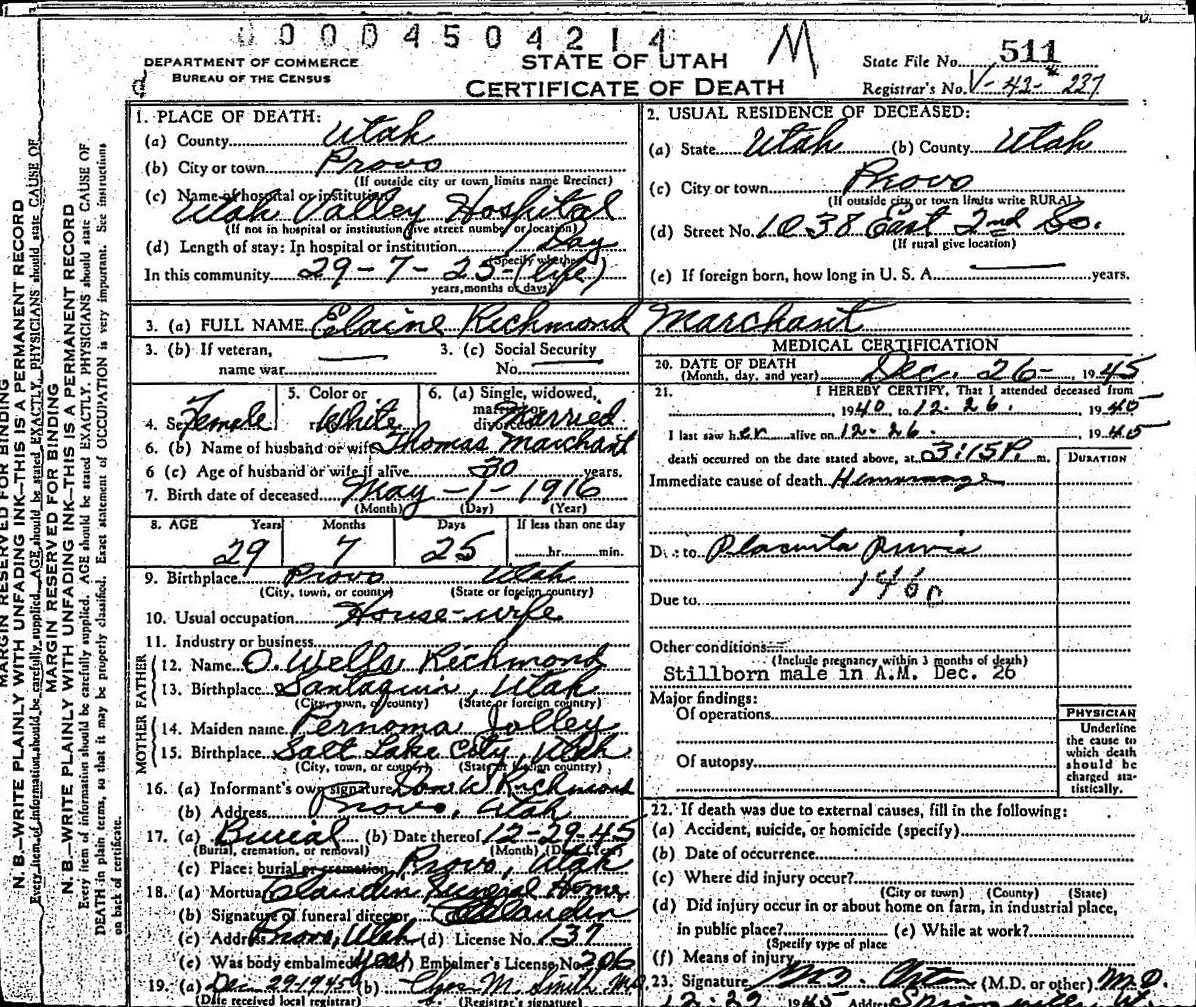 00004504214
M
DEPARTMENT OF COMMERCE
BUREAU OF THE CENSUS
d
STATE OF UTAH
CERTIFICATE OF DEATH
State File No. 511
Registrar's No. V-42-* 237
1. PLACE OF DEATH:
(a) County Utah
(b) City or town Provo
(If outside city or town limits name Precinct)
(c) Name of hospital or institution:
Utah Valley Hospital
(If not in hospital or institution give street number or location)
(d) Length of stay: In hospital or institution 1 Day
(Specify whether
In this community 29-7-25-(life)
years, months or days)
2. USUAL RESIDENCE OF DECEASED:
(a) State Utah (b) County Utah
(c) City or town Provo
(If outside city or town limits write RURAL)
(d) Street No. 1038 East 2nd So.
(If rural give location)
(e) If foreign born, how long in U. S. A. years.
3. (a) FULL NAME Elaine Richmond Marchant
3. (b) If veteran,
name war
3. (c) Social Security
No.
4. Sex Female
5. Color or
race White
6. (a) Single, widowed,
married or
divorced Married
6. (b) Name of husband or wife Thomas Marchant
6 (c) Age of husband or wife if alive 30 years.
7. Birth date of deceased May - 1 - 1916
(Month) (Day) (Year)
8. AGE Years Months Days If less than one day
29 7 25 hr. min.
9. Birthplace Provo Utah
(City, town, or county) (State or foreign country)
10. Usual occupation House-wife
11. Industry or business
FATHER
12. Name O. Wells Richmond
13. Birthplace Santaquin, Utah
(City, town, or county) (State or foreign country)
MOTHER
14. Maiden name Pernoma Jolley
15. Birthplace Salt Lake City, Utah
(City, town, or county) (State or foreign country)
16. (a) Informant's own signature Richmond
(b) Address Provo, Utah
17. (a) Burial (b) Date thereof 12-29-45
(Burial, cremation, or removal) (Month) (Day) (Year)
(c) Place: burial or cremation Provo, Utah
18. (a) Mortuary Claudin Funeral Home
(b) Signature of funeral director Claudin
(c) Address Provo, Utah (d) License No. 137
(e) Was body embalmed yes (f) Embalmer's License No. 206
19. (a) Dec 29-1945 (b) Chas M. Smith MD
(Date received local registrar) (Registrar's signature)
MEDICAL CERTIFICATION
20. DATE OF DEATH
(Month, day, and year) Dec. 26- 1945
21. I HEREBY CERTIFY, That I attended deceased from
1940, to 12-26. 1945
I last saw her alive on 12-26. 1945
death occurred on the date stated above, at 3:15 P. m.
DURATION
Immediate cause of death Hemorrhage
Due to Placenta previa
146c
Due to
Other conditions
(Include pregnancy within 3 months of death)
Stillborn male in A.M. Dec. 26
Major findings:
Of operations
Of autopsy
PHYSICIAN
Underline
the cause to
which death
should be
charged sta-
tistically.
22. If death was due to external causes, fill in the following:
(a) Accident, suicide, or homicide (specify)
(b) Date of occurrence
(c) Where did injury occur?
(City or town) (County) (State)
(d) Did injury occur in or about home on farm, in industrial place,
in public place? (e) While at work?
(Specify type of place
(f) Means of injury
23. Signature (M.D. or other) M.D.
12-29 1945 Address
MARGIN RESERVED FOR BINDING
N. B.—WRITE PLAINLY WITH UNFADING INK—THIS IS A PERMANENT RECORD
Every item of information should be carefully supplied. AGE should be stated EXACTLY. PHYSICIANS should state CAUSE OF
MARGIN RESERVED FOR BINDING
N. B.—WRITE PLAINLY WITH UNFADING INK—THIS IS A PERMANENT RECORD
Every item of information should be carefully supplied. AGE should be stated EXACTLY. PHYSICIANS should state CAUSE OF
DEATH in plain terms, so that it may be properly classified. Exact statement of OCCUPATION is very important. See instructions
on back of certificate.